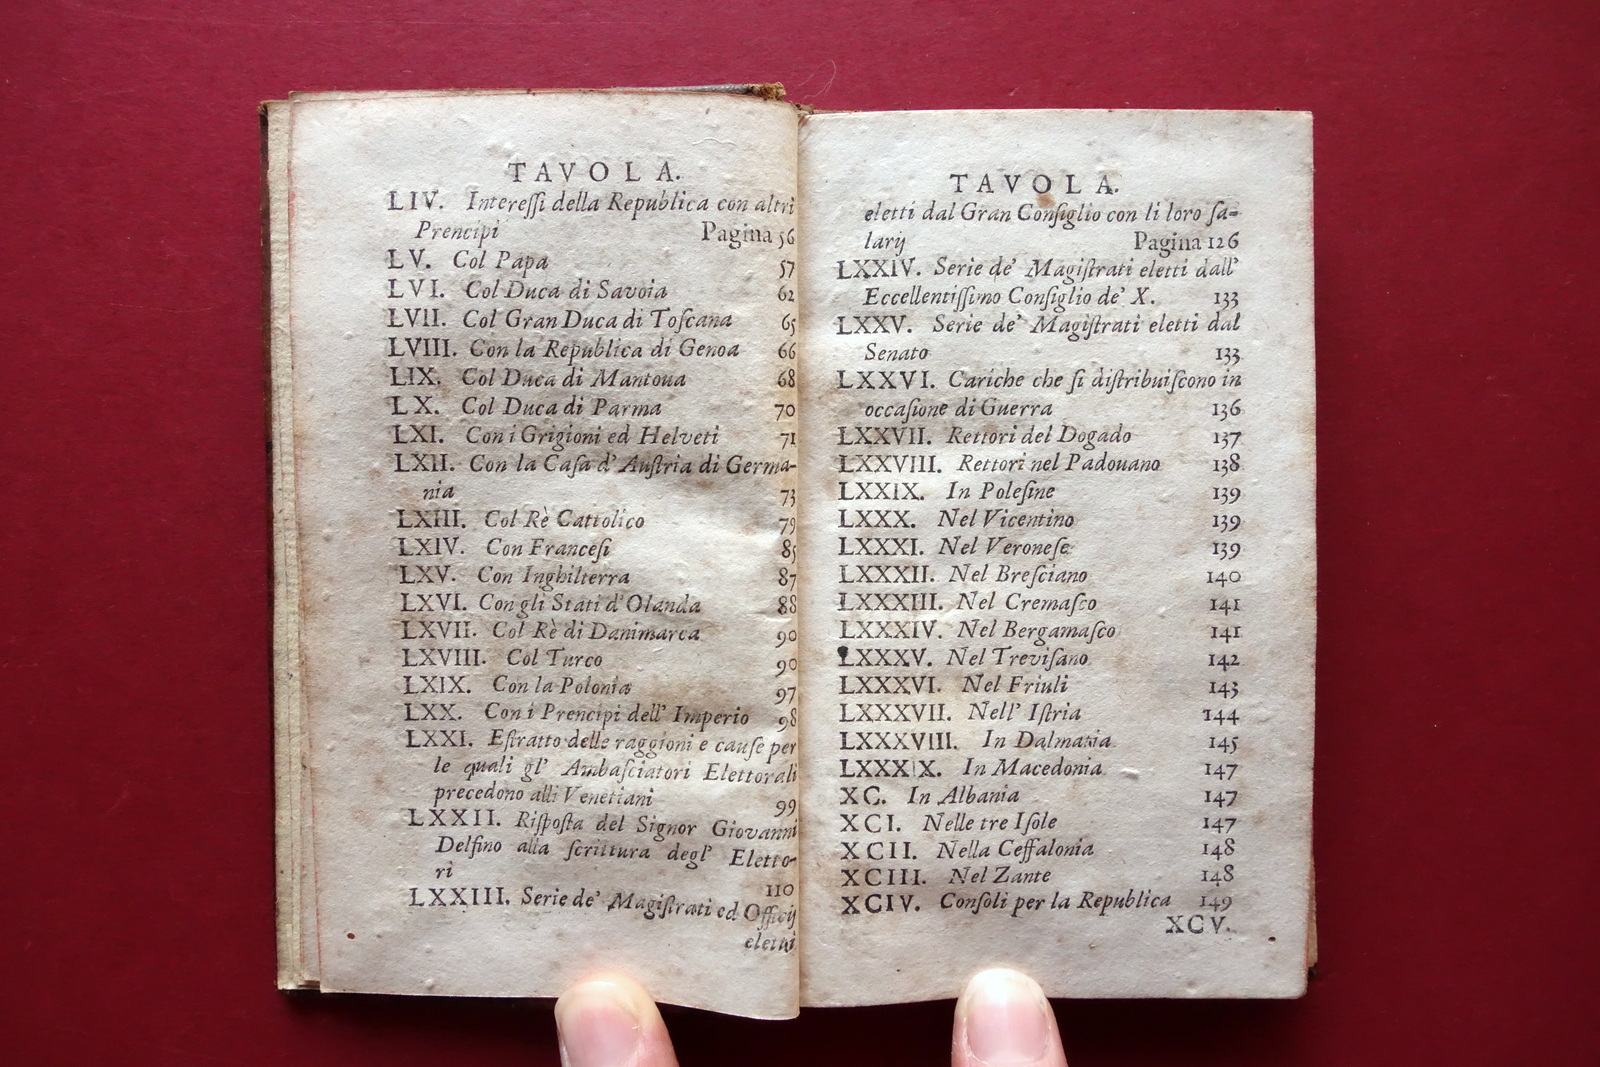 TAVOLA.
LIV. Intereſſi della Republica con altri
Prencipi Pagina 56
LV. Col Papa 57
LVI. Col Duca di Savoia 62
LVII. Col Gran Duca di Toſcana 65
LVIII. Con la Republica di Genoa 66
LIX. Col Duca di Mantoua 68
LX. Col Duca di Parma 70
LXI. Con i Grigioni ed Helveti 71
LXII. Con la Caſa d'Auſtria di Germa-
nia 73
LXIII. Col Rè Cattolico 79
LXIV. Con Franceſi 85
LXV. Con Inghilterra 87
LXVI. Con gli Stati d'Olanda 88
LXVII. Col Rè di Danimarca 90
LXVIII. Col Turco 90
LXIX. Con la Polonia 97
LXX. Con i Prencipi dell' Imperio 98
LXXI. Eſtratto delle raggioni e cauſe per
le quali gl' Ambaſciatori Elettorali
precedono alli Venetiani 99
LXXII. Riſpoſta del Signor Giovanni
Delfino alla ſcrittura degl' Eletto-
ri 110
LXXIII. Serie de' Magiſtrati ed Officij
eletti
TAVOLA.
eletti dal Gran Conſiglio con li loro ſa-
larij Pagina 126
LXXIV. Serie de' Magiſtrati eletti dall'
Eccellentiſſimo Conſiglio de' X. 133
LXXV. Serie de' Magiſtrati eletti dal
Senato 133
LXXVI. Cariche che ſi diſtribuiſcono in
occaſione di Guerra 136
LXXVII. Rettori del Dogado 137
LXXVIII. Rettori nel Padouano 138
LXXIX. In Poleſine 139
LXXX. Nel Vicentino 139
LXXXI. Nel Veroneſe 139
LXXXII. Nel Breſciano 140
LXXXIII. Nel Cremaſco 141
LXXXIV. Nel Bergamaſco 141
LXXXV. Nel Treviſano 142
LXXXVI. Nel Friuli 143
LXXXVII. Nell' Iſtria 144
LXXXVIII. In Dalmatia 145
LXXXIX. In Macedonia 147
XC. In Albania 147
XCI. Nelle tre Iſole 147
XCII. Nella Ceffalonia 148
XCIII. Nel Zante 148
XCIV. Conſoli per la Republica 149
XCV.